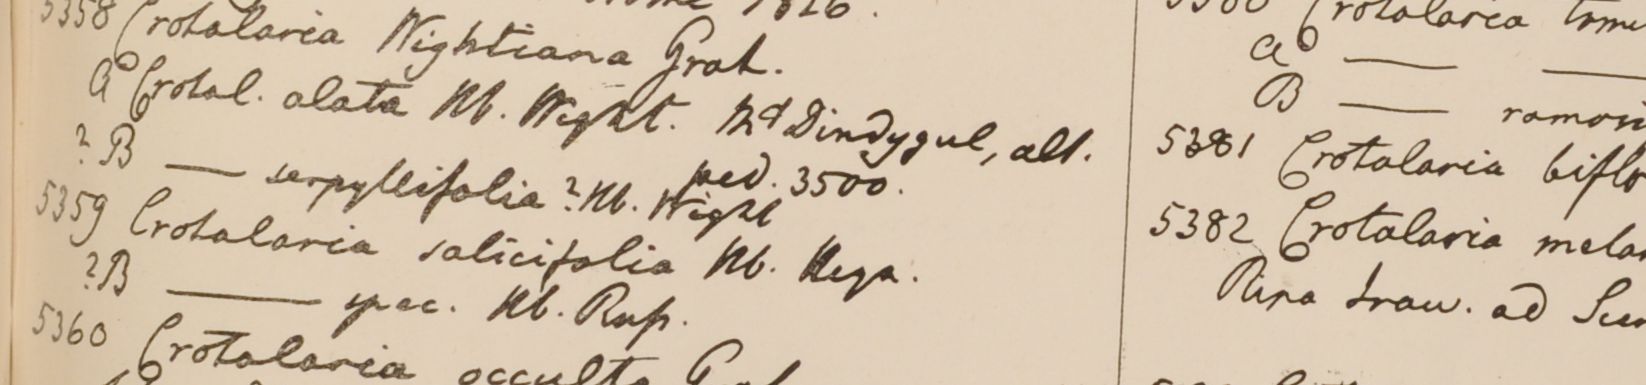 1826.
5358 Crotalaria Wightiana Grah.
a Crotal. alata Hb. Wight. Dindygul, alt.
ped. 3500.
? B — serpyllifolia? Hb. Wight
5359 Crotalaria salicifolia Hb. Heyn.
? B — spec. Hb. Rup.
5360 Crotalaria occulta Grah
Crotalaria
a — —
B — ramosi
5381 Crotalaria biflo
5382 Crotalaria melan
Ripa Iraw. ad